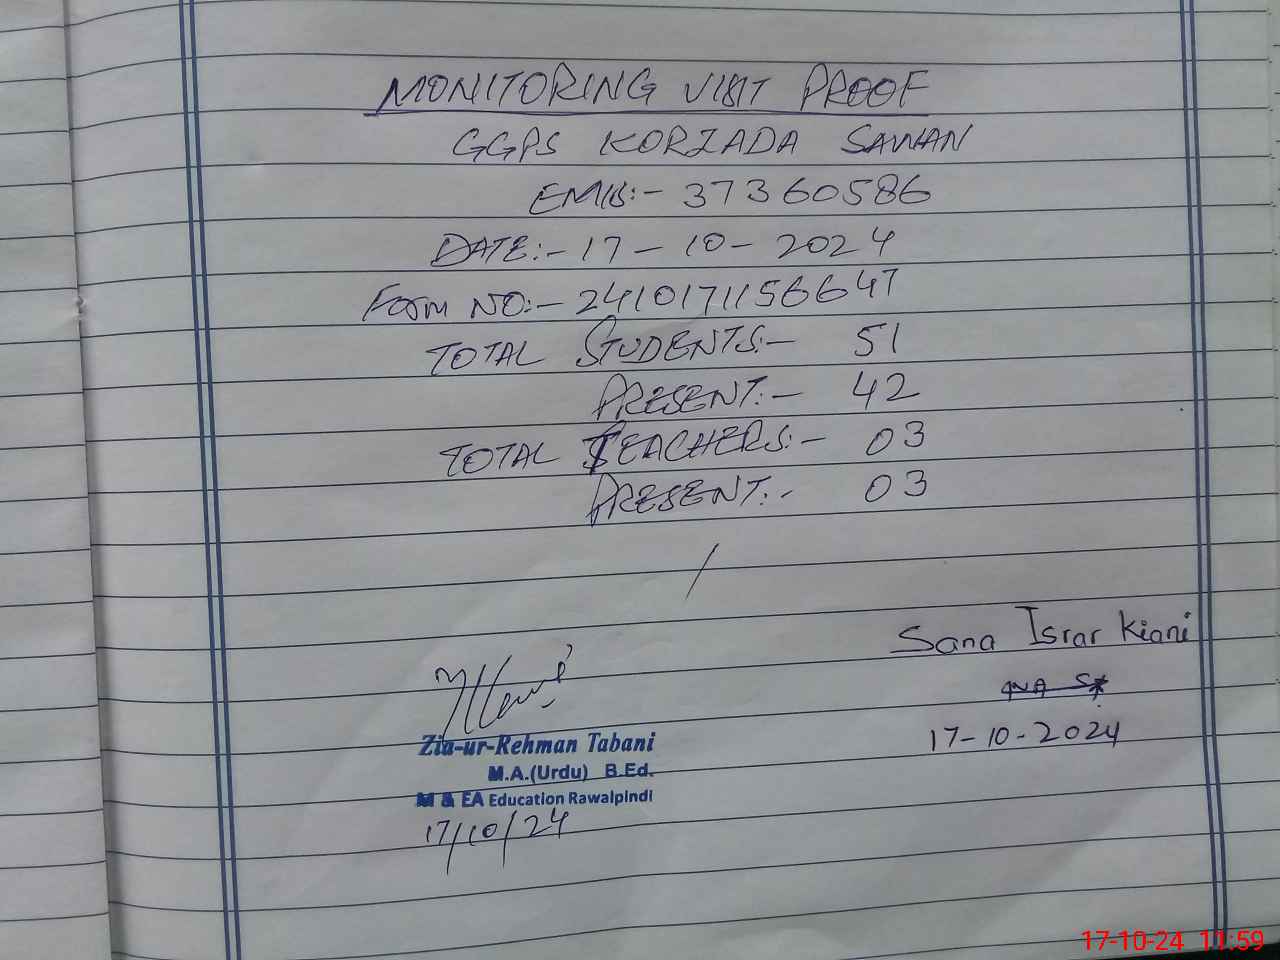 MONITORING VISIT PROOF
GGPS KORZADA SAWAN
EMIS:- 37360586
DATE:- 17 - 10 - 2024
Form NO:- 2410171156647
TOTAL STUDENTS:- 51
PRESENT:- 42
TOTAL TEACHERS:- 03
PRESENT:- 03
Sana Israr Kiani
17-10-2024
Zia-ur-Rehman Tabani
M.A.(Urdu) B.Ed.
M & EA Education Rawalpindi
17/10/24
17-10-24 11:59